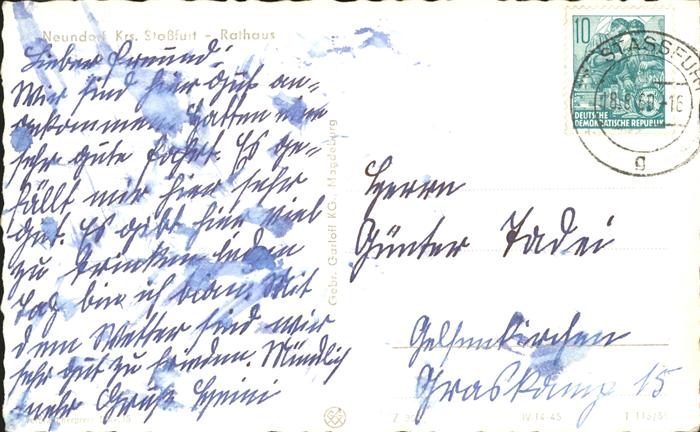 Neundorf Krs. Staßfurt - Rathaus
Lieber Freund!
Wir sind hier gut an-
gekommen. Hatten eine
sehr gute Fahrt. Es ge-
fällt mir hier sehr
gut. Es gibt hier viel
zu trinken jeden
Tag bin ich blau. Mit
dem Wetter sind wir
sehr gut zu frieden. Mündlich
mehr Gruß Heini
Gebr. Garloff KG., Magdeburg
10
DEUTSCHE
DEMOKRATISCHE REPUBLIK
STASSFURT
18.8.60-16
g
Herrn
Günter Tadei
Gelsenkirchen
Graskamp 15
IV-14-45